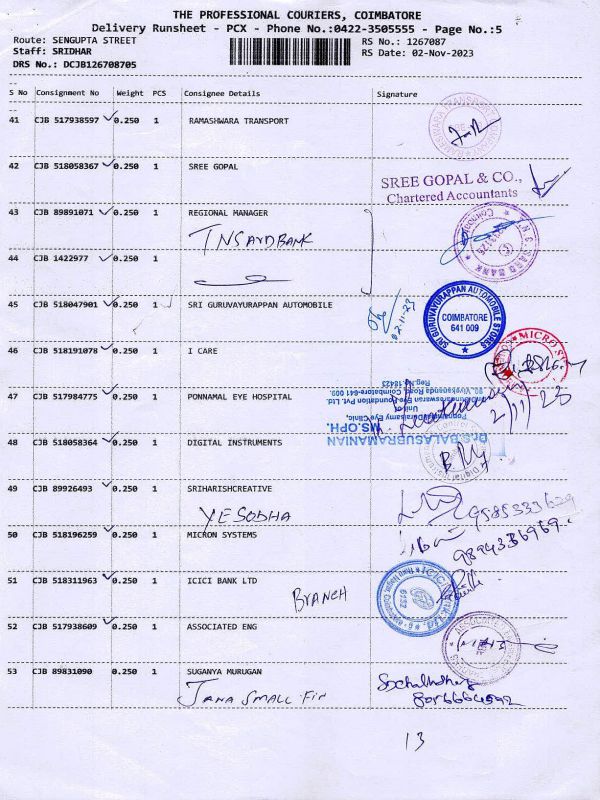 THE PROFESSIONAL COURIERS, COIMBATORE
Delivery Runsheet - PCX - Phone No.:0422-3505555 - Page No.:5
Route: SENGUPTA STREET RS No.: 1267087
Staff: SRIDHAR RS Date: 02-Nov-2023
DRS No.: DCJB126708705
S No Consignment No Weight PCS Consignee Details Signature
41 CJB 517938597 0.250 1 RAMASHWARA TRANSPORT
42 CJB 518058367 0.250 1 SREE GOPAL
SREE GOPAL & CO.,
Chartered Accountants
43 CJB 89891071 0.250 1 REGIONAL MANAGER
44 CJB 1422977 0.250 1
45 CJB 518047901 0.250 1 SRI GURUVAYURAPPAN AUTOMOBILE
02.11.23
SRI GURUVAYURAPPAN AUTOMOBILE STORES
COIMBATORE
641 009
46 CJB 518191078 0.250 1 I CARE
MICRO
47 CJB 517984775 0.250 1 PONNAMAL EYE HOSPITAL
Dr.S.BALASUBRAMANIAN
MS.OPH.
2/11/23
48 CJB 518058364 0.250 1 DIGITAL INSTRUMENTS
49 CJB 89926493 0.250 1 SRIHARISHCREATIVE
YESODHA
50 CJB 518196259 0.250 1 MICRON SYSTEMS
51 CJB 518311963 0.250 1 ICICI BANK LTD
BRANCH
52 CJB 517938609 0.250 1 ASSOCIATED ENG
53 CJB 89831090 0.250 1 SUGANYA MURUGAN
JANA SMALL FIN
13